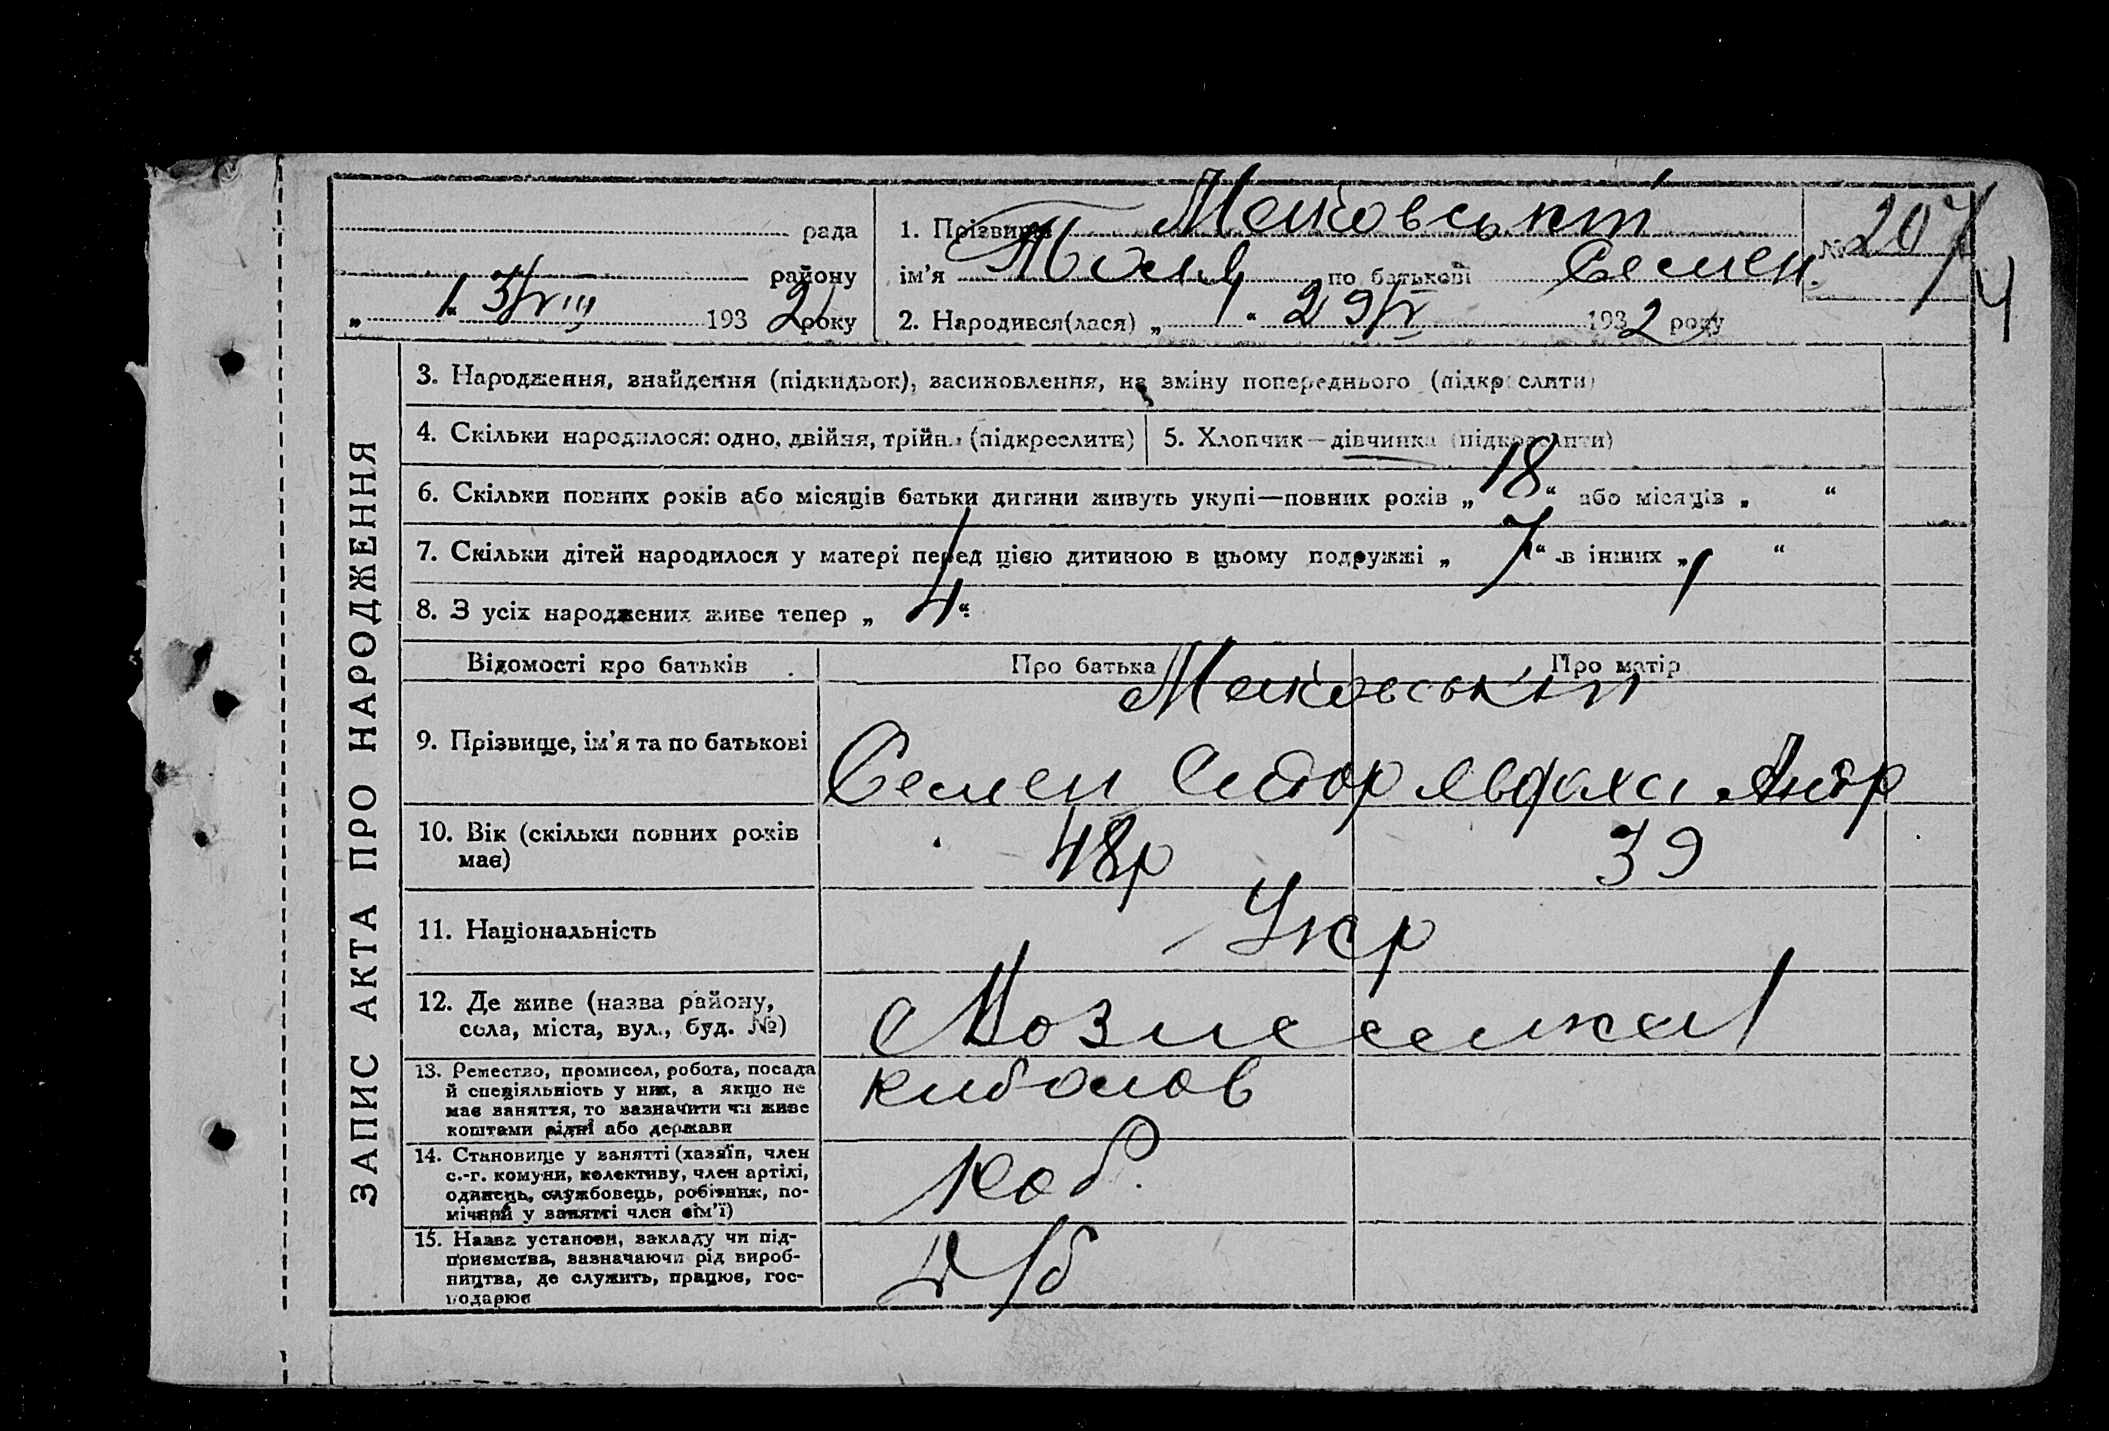 рада
району
„ 13/VIII 1932 року
1. Прізвище Маковськ
ім'я по батькові Семен.
2. Народився(лася) „ “ 29/V 1932 року
№ 207
4
ЗАПИС АКТА ПРО НАРОДЖЕННЯ
3. Народження, знайдення (підкидьок), засиновлення, на зміну попереднього (підкреслити)
4. Скільки народилося: одно, двійня, трійня (підкреслити)
5. Хлопчик—дівчинка (підкреслити)
6. Скільки повних років або місяців батьки дитини живуть укупі—повних років „ 18 “ або місяців „ “
7. Скільки дітей народилося у матері перед цією дитиною в цьому подружжі „ 7 “ в інших „ “
8. З усіх народжених живе тепер „ 4 “
Відомості про батьків
Про батька
Про матір
9. Прізвище, ім'я та по батькові
Маковські
Семен Сидор Явдоха Андр
10. Вік (скільки повних років
має)
48р
39
11. Національність
Укр
12. Де живе (назва району,
села, міста, вул., буд. №)
13. Ремество, промисел, робота, посада
й спеціяльність у них, а якщо не
має заняття, то зазначити чи живе
коштами рідні або держави
14. Становище у занятті (хазяїн, член
с.-г. комуни, колективу, член артілі,
одинець, службовець, робітник, по-
мічний у занятті член сім'ї)
15. Назва установи, закладу чи під-
приємства, зазначаючи рід вироб-
ництва, де служить, працює, гос-
подарює